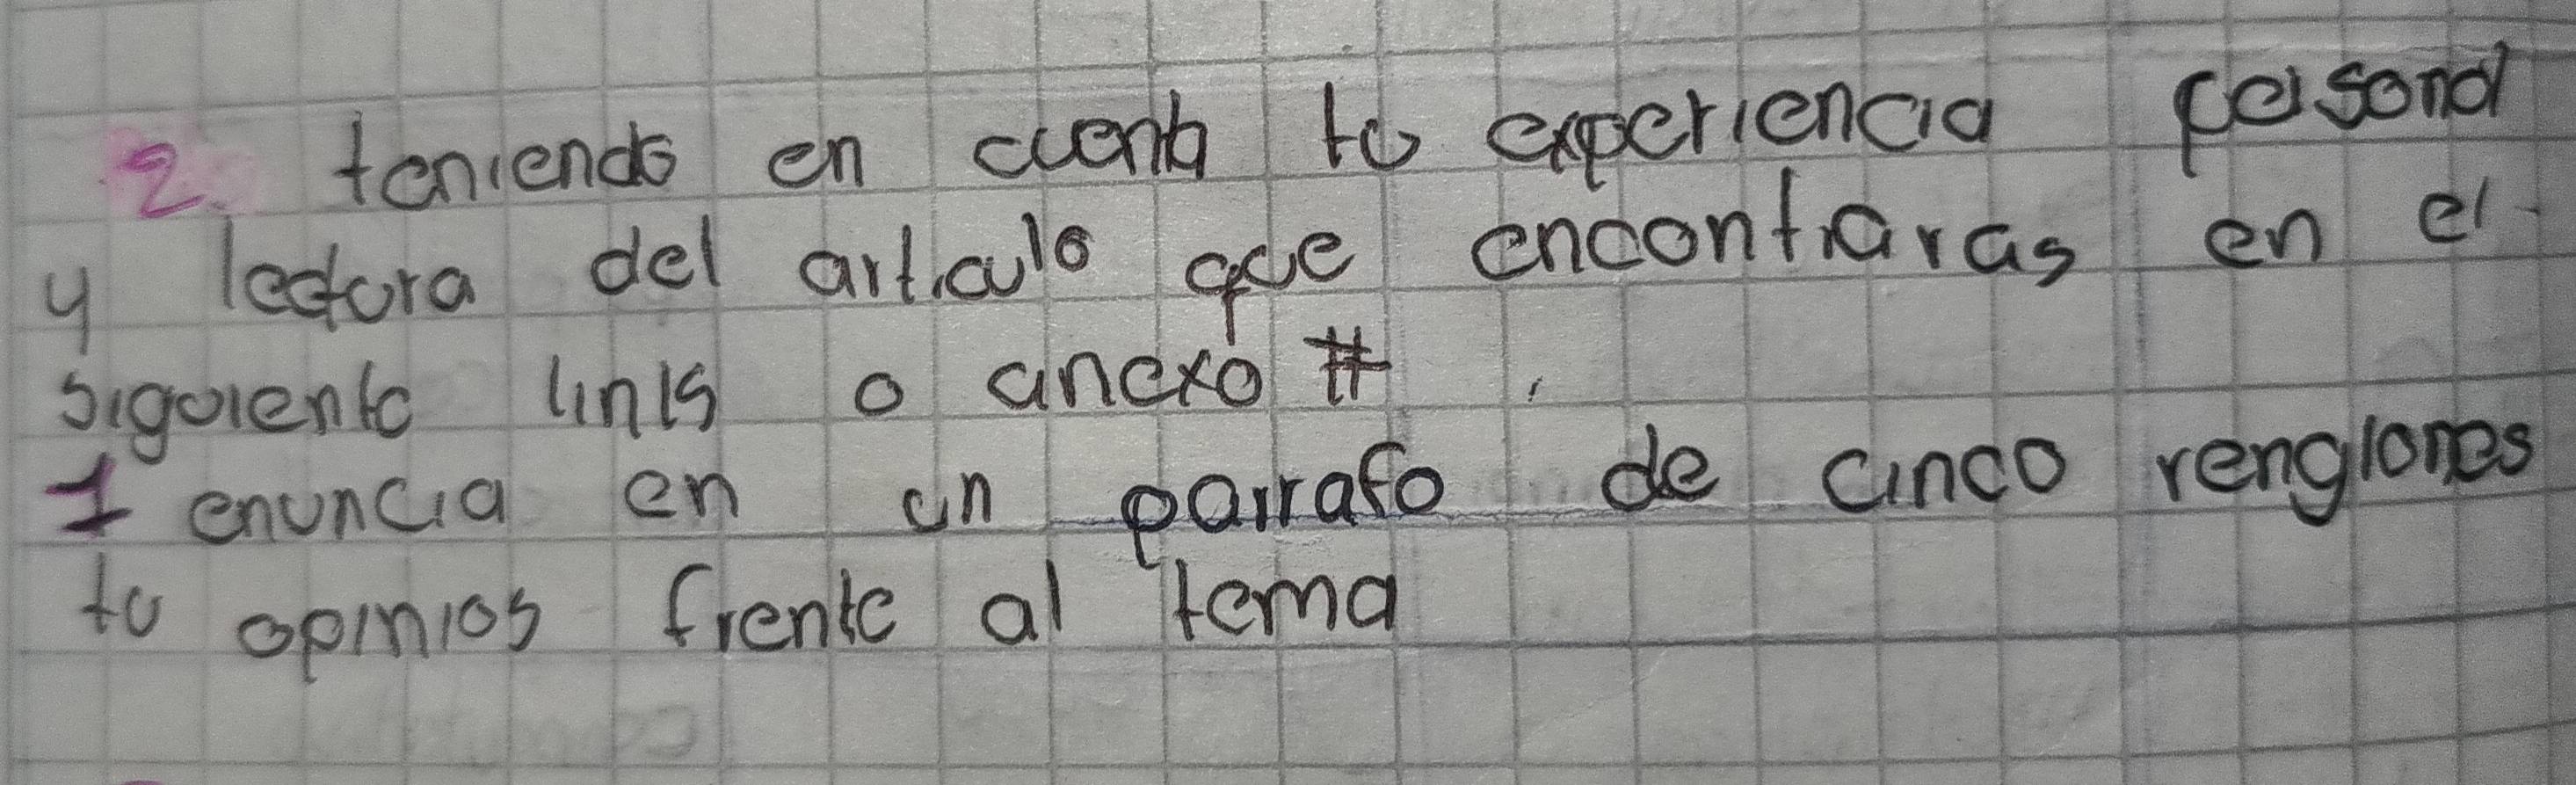 2. teniendo en cuenta tu experiencia personal
y lectura del articulo que encontraras en el
siguiente links o anexo #
1 enuncia en un parrafo de cinco renglones
tu opinios frente al tema